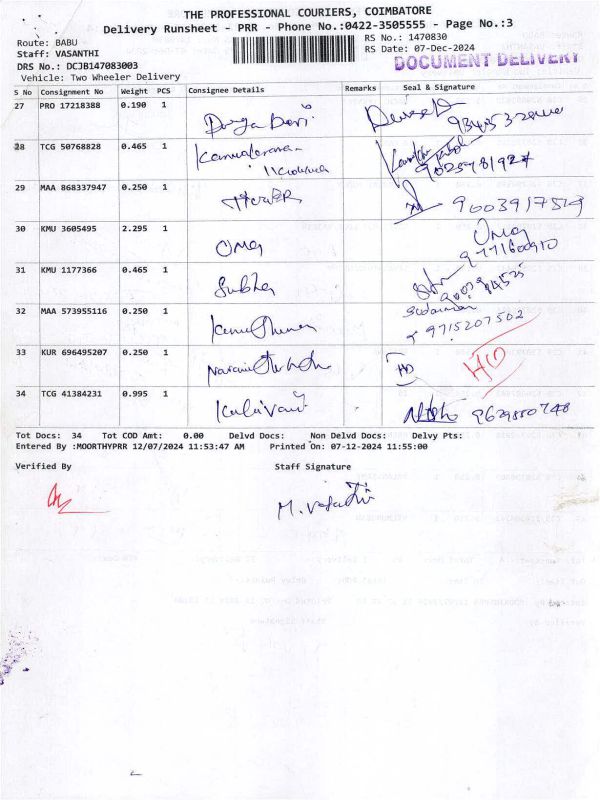 THE PROFESSIONAL COURIERS, COIMBATORE
Delivery Runsheet - PRR - Phone No.:0422-3505555 - Page No.:3
Route: BABU
RS No.: 1470830
Staff: VASANTHI
RS Date: 07-Dec-2024
DOCUMENT DELIVERY
DRS No.: DCJB147083003
Vehicle: Two Wheeler Delivery
S No Consignment No Weight PCS Consignee Details Remarks Seal & Signature
27 PRO 17218388 0.190 1 Durga Devi
28 TCG 50768828 0.465 1
29 MAA 868337947 0.250 1 9003917519
30 KMU 3605495 2.295 1 Uma Uma
9771600910
31 KMU 1177366 0.465 1 Subha
32 MAA 573955116 0.250 1
9715207502
33 KUR 696495207 0.250 1 HD HD
34 TCG 41384231 0.995 1 Kalaivani
Tot Docs: 34 Tot COD Amt: 0.00 Delvd Docs: Non Delvd Docs: Delvy Pts:
Entered By :MOORTHYPRR 12/07/2024 11:53:47 AM Printed On: 07-12-2024 11:55:00
Verified By Staff Signature
M. Vasanthi